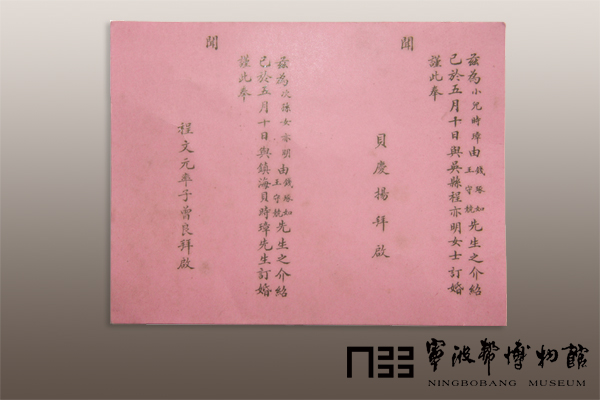 茲為小兒時璋由錢琢如王守競先生之介紹
已於五月十日與吳縣程亦明女士訂婚
謹此奉
聞
貝慶揚拜啟
茲為次孫女亦明由錢琢如王守競先生之介紹
已於五月十日與鎮海貝時璋先生訂婚
謹此奉
聞
程文元率子曾良拜啟
寧波幫博物館
NINGBOBANG MUSEUM